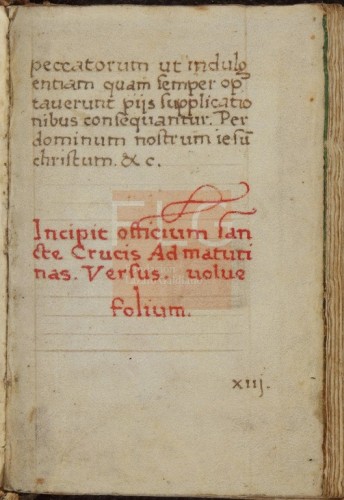 peccatorum ut indulg
entiam quam semper op
tauerunt piis supplicatio
nibus consequantur. Per
dominum nostrum iesū
christum. & c.
Incipit officium san
cte Crucis Ad matuti
nas. Versus. uolue
folium.
xiij.